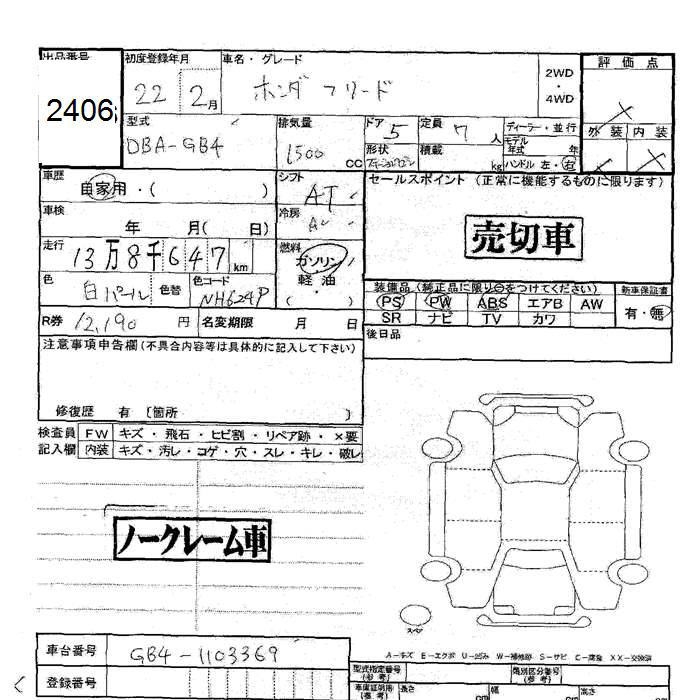 出品番号
2406
初度登録年月
22 2月
車名・グレード
ホンダ フリード
2WD
・
4WD
評価点
外装 内装
型式
DBA-GB4
排気量
1500 CC
ドア 5
形状
定員 7 人
積載 kg
ディーラー・並行
モデル年式 年
ハンドル 左・右
車歴
自家用・( )
シフト
AT
セールスポイント (正常に機能するものに限ります)
車検
年 月( 日)
冷房
売切車
走行
13万8千647km
燃料
ガソリン
軽油
( )
色
白パール
色替
色コード
NH624P
装備品(純正品に限り○をつけてください)
PS PW ABS エアB AW
SR ナビ TV カワ
新車保証書
有・無
R券 12,190 円
名変期限 月 日
後日品
注意事項申告欄(不具合内容等は具体的に記入して下さい)
修復歴 有 [箇所 ]
検査員
記入欄
FW キズ・飛石・ヒビ割・リペア跡・×要
内装 キズ・汚レ・コゲ・穴・スレ・キレ・破レ
ノークレーム車
スペア
A-キズ E-エクボ U-凹み W-補修跡 S-サビ C-腐食 XX-交換済
車台番号
GB4-1103369
登録番号
型式指定番号
(参考)
類別区分番号
(参考)
車庫証明用
(参考)
長さ
幅
高さ